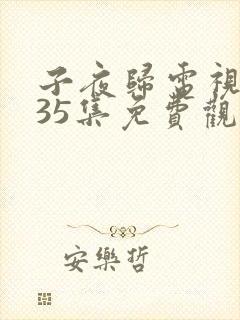 子夜歸電視
35集免費觀
安樂哲